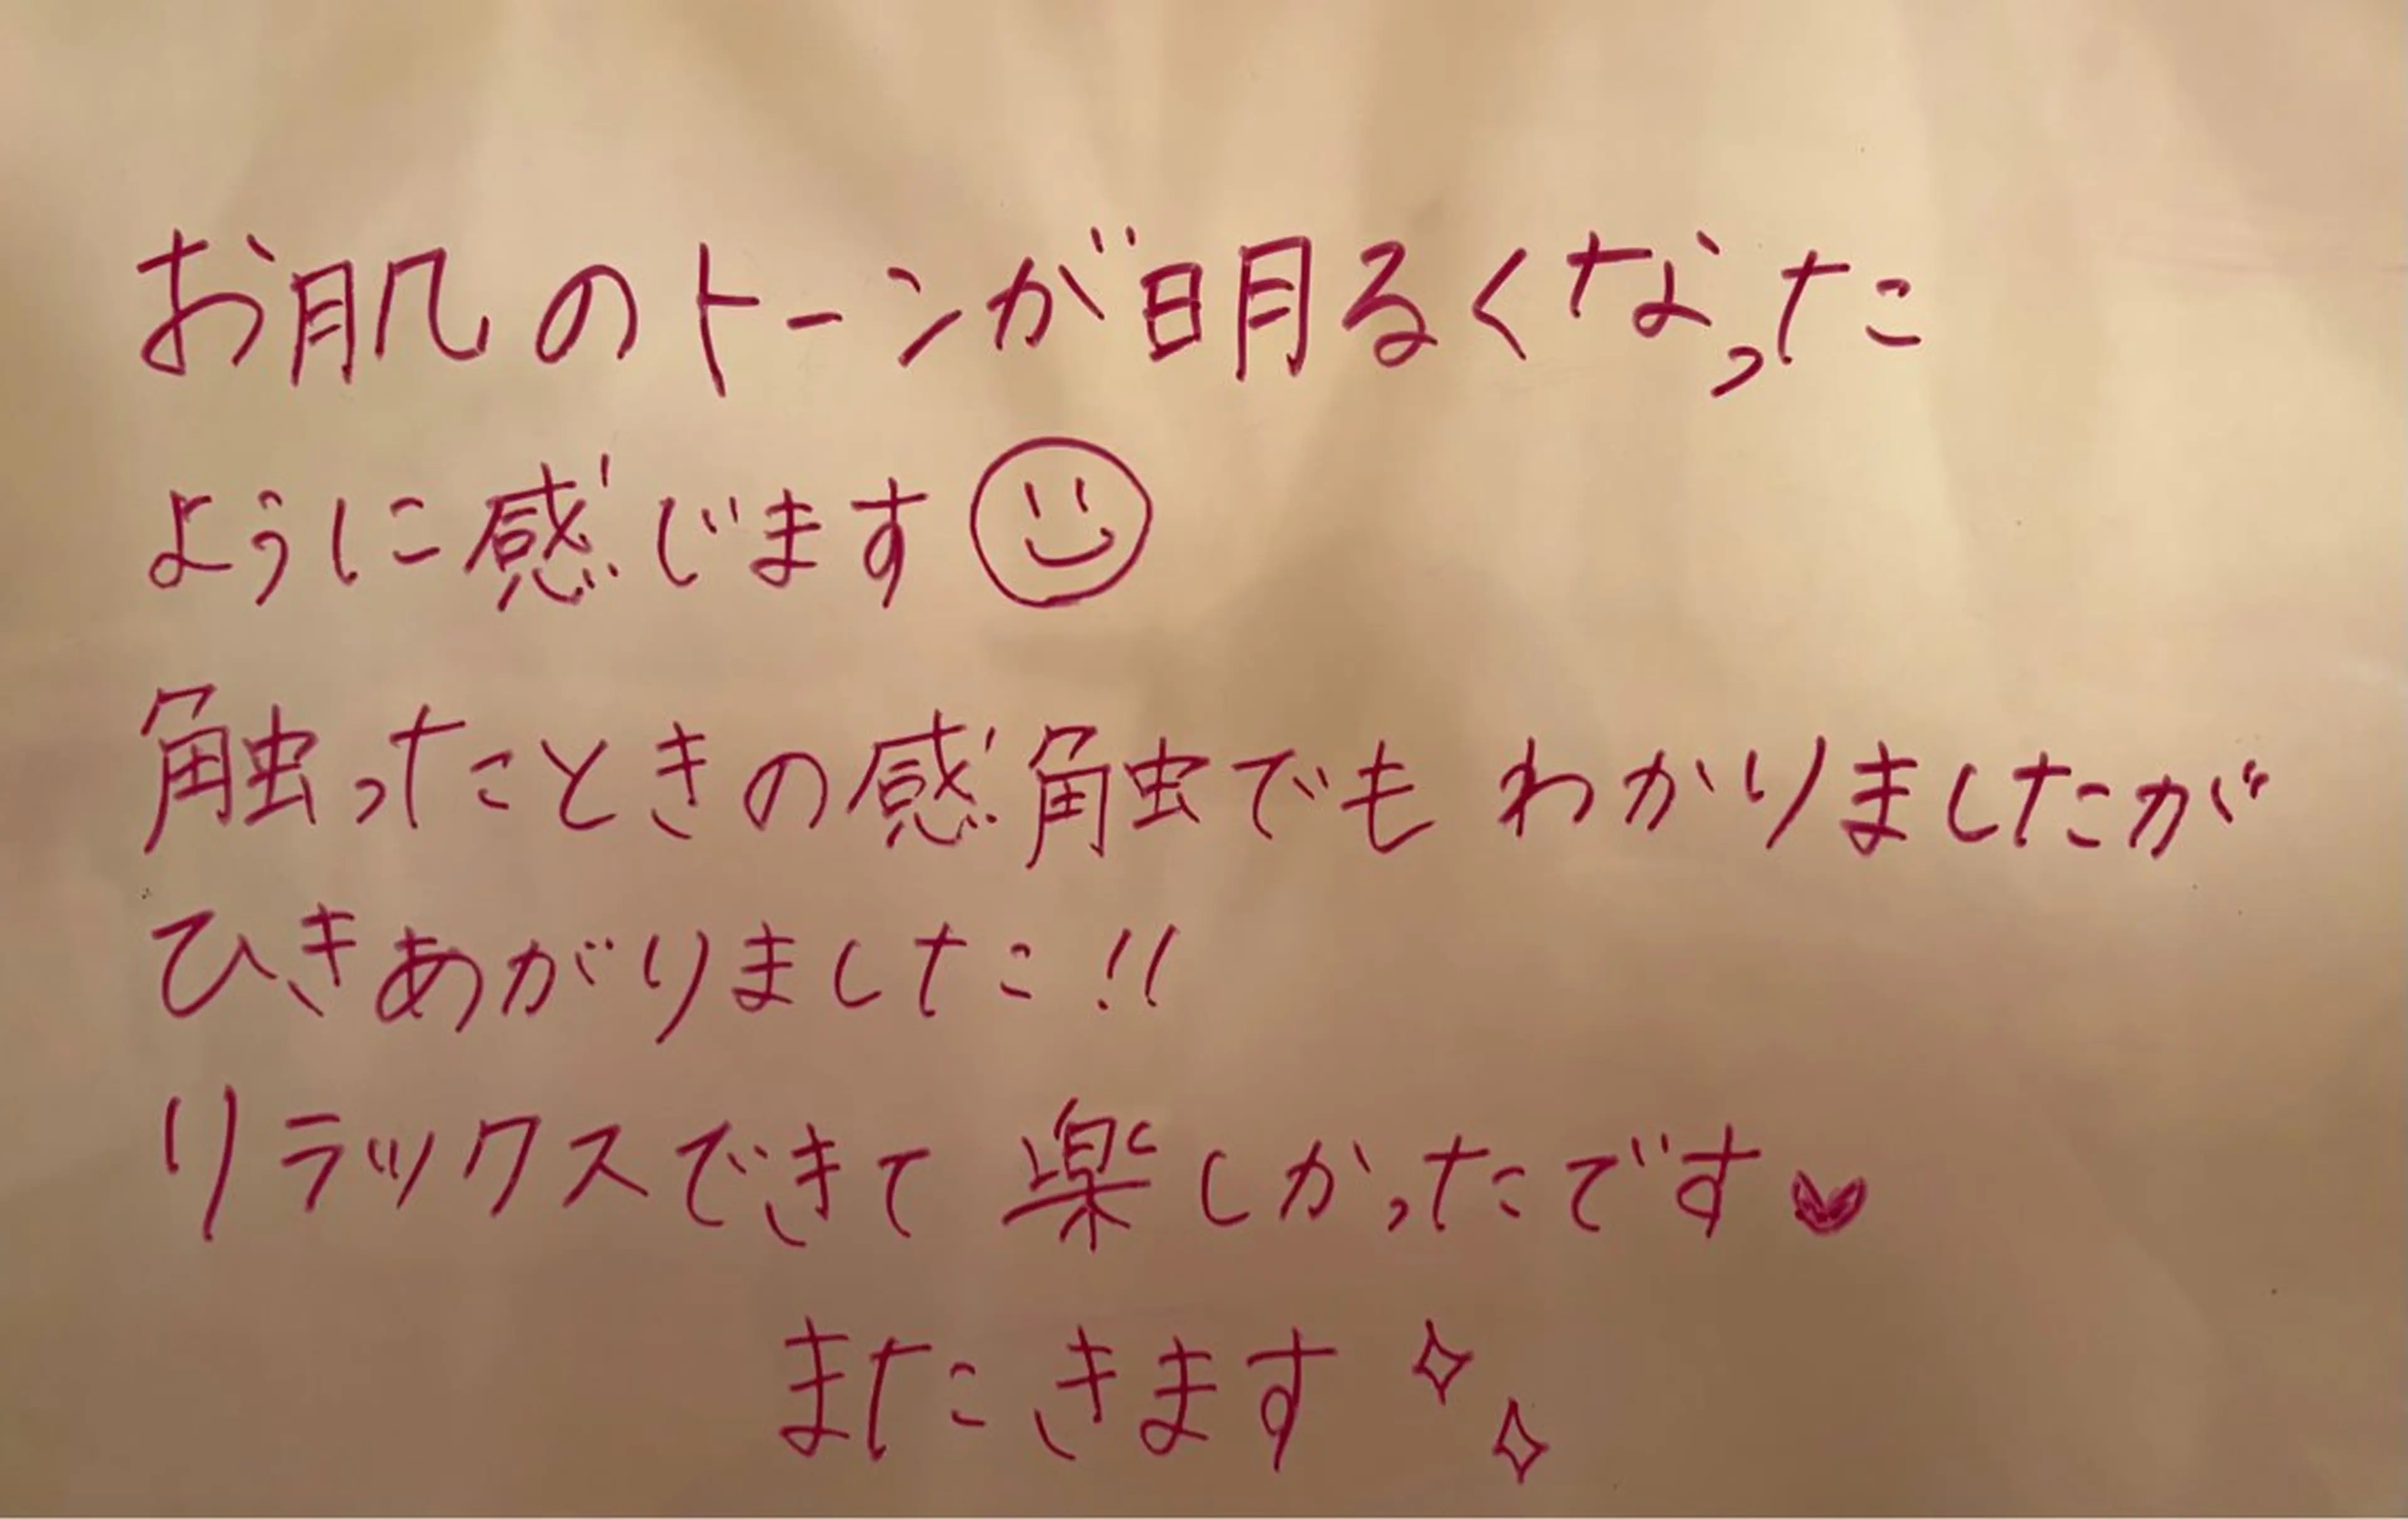 お肌のトーンが明るくなった
ように感じます☺
触ったときの感触でもわかりましたが
ひきあがりました!!
リラックスできて 楽しかったです♥
またきます✧✧